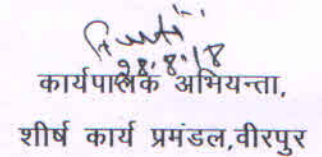 28.8.18
कार्यपालक अभियन्ता,
शीर्ष कार्य प्रमंडल,वीरपुर